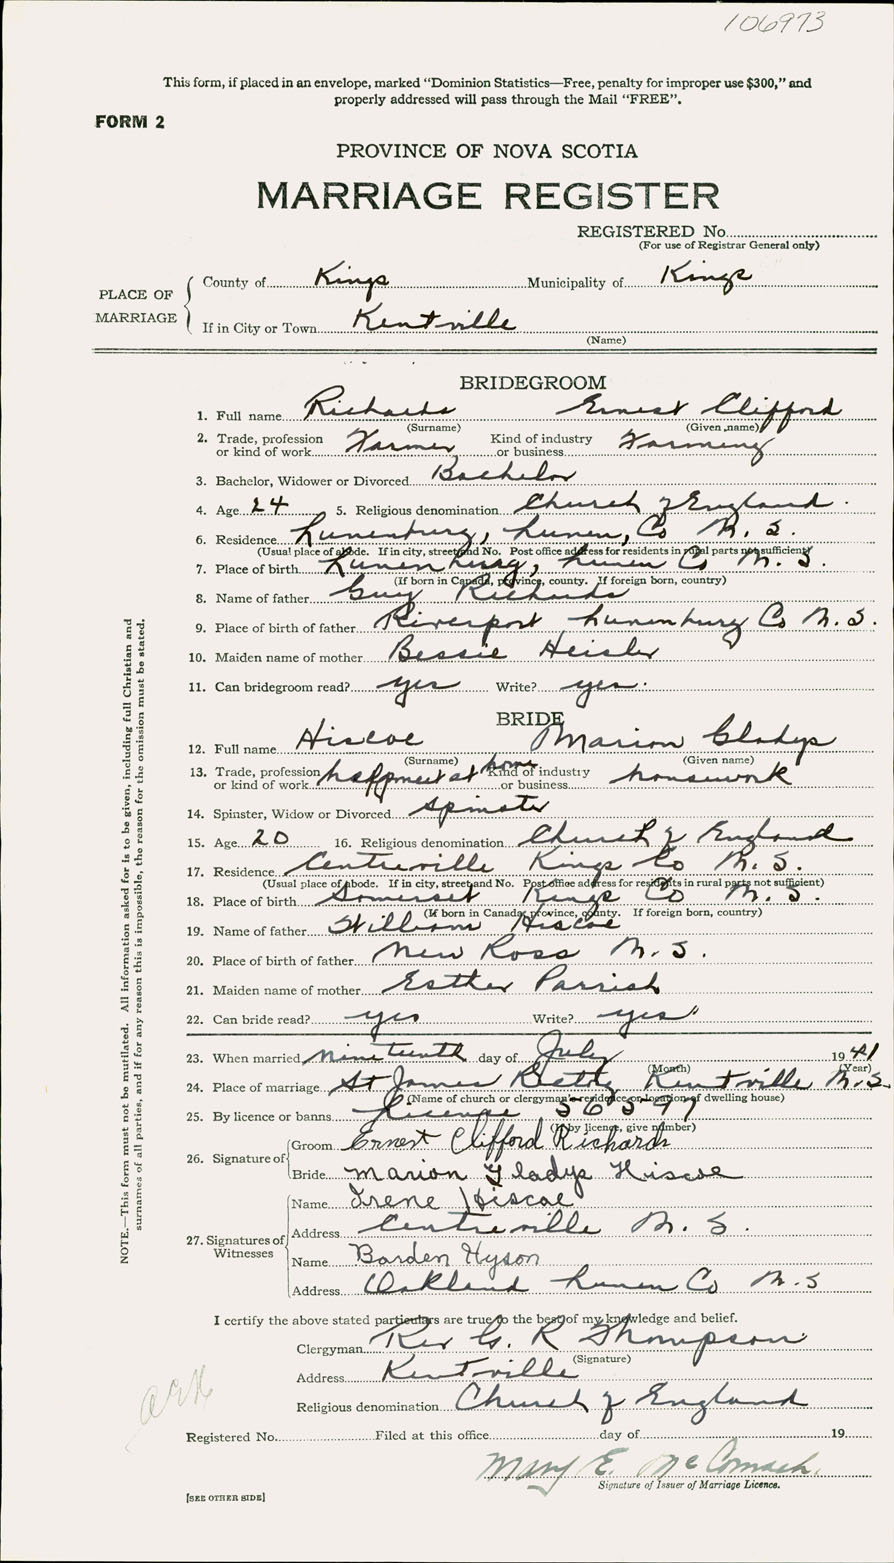 106973
This form, if placed in an envelope, marked "Dominion Statistics—Free, penalty for improper use $300," and
properly addressed will pass through the Mail "FREE".
FORM 2
PROVINCE OF NOVA SCOTIA
MARRIAGE REGISTER
REGISTERED No.
(For use of Registrar General only)
PLACE OF MARRIAGE
County of Kings Municipality of Kings
If in City or Town Kentville
(Name)
BRIDEGROOM
1. Full name Richards Ernest Clifford
(Surname) (Given name)
2. Trade, profession or kind of work Farmer Kind of industry or business Farming
3. Bachelor, Widower or Divorced Bachelor
4. Age 24 5. Religious denomination Church of England
6. Residence Lunenburg, Lunen, Co N. S.
(Usual place of abode. If in city, street and No. Post office address for residents in rural parts not sufficient)
7. Place of birth Lunenburg, Lunen Co N. S.
(If born in Canada, province, county. If foreign born, country)
8. Name of father Guy Richards
9. Place of birth of father Riverport Lunenburg Co N. S.
10. Maiden name of mother Bessie Heisler
11. Can bridegroom read? yes Write? yes.
BRIDE
12. Full name Hiscoe Marion Gladys
(Surname) (Given name)
13. Trade, profession or kind of work at home Kind of industry or business housework
14. Spinster, Widow or Divorced Spinster
15. Age 20 16. Religious denomination Church of England
17. Residence Centreville Kings Co N. S.
(Usual place of abode. If in city, street and No. Post office address for residents in rural parts not sufficient)
18. Place of birth Somerset Kings Co N. S.
(If born in Canada, province, county. If foreign born, country)
19. Name of father William Hiscoe
20. Place of birth of father New Ross N. S.
21. Maiden name of mother Esther Parrish
22. Can bride read? yes Write? yes"
23. When married nineteenth day of July 1941
(Month) (Year)
24. Place of marriage St James Kentville N. S.
(Name of church or clergyman's residence or location of dwelling house)
25. By licence or banns License 56597
(If by licence, give number)
26. Signature of
Groom Ernest Clifford Richards
Bride Marion Gladys Hiscoe
27. Signatures of Witnesses
Name Irene Hiscoe
Address Centreville N. S.
Name Barden Hyson
Address Oakland Lunen Co N. S
I certify the above stated particulars are true to the best of my knowledge and belief.
Clergyman Rev G. R Thompson
(Signature)
Address Kentville
Religious denomination Church of England
Registered No. Filed at this office day of 19
Mary E. McCormack.
Signature of Issuer of Marriage Licence.
[SEE OTHER SIDE]
NOTE.—This form must not be mutilated. All information asked for is to be given, including full Christian and
surnames of all parties, and if for any reason this is impossible, the reason for the omission must be stated.